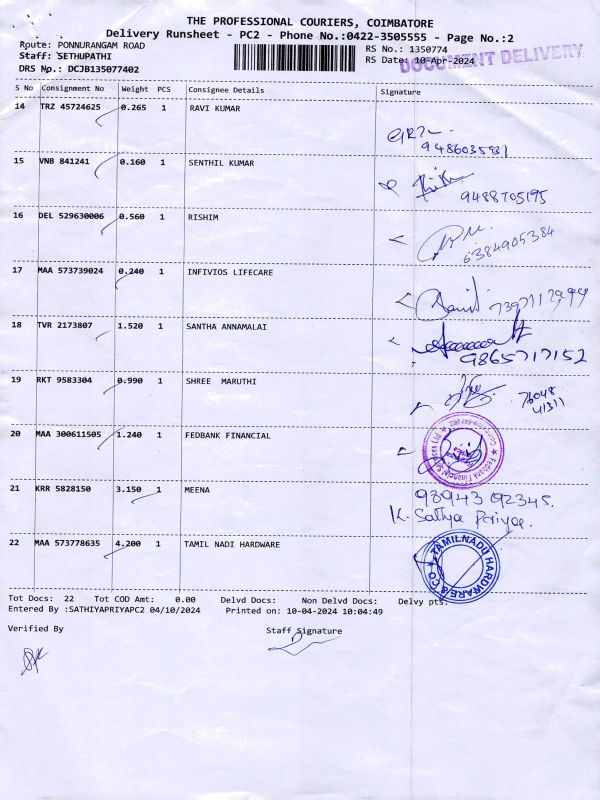 THE PROFESSIONAL COURIERS, COIMBATORE
Delivery Runsheet - PC2 - Phone No.:0422-3505555 - Page No.:2
Rpute: PONNURANGAM ROAD RS No.: 1350774
Staff: SETHUPATHI RS Date: 10-Apr-2024
DOCUMENT DELIVERY
DRS Np.: DCJB135077402
S No Consignment No Weight PCS Consignee Details Signature
14 TRZ 45724625 0.265 1 RAVI KUMAR
15 VNB 841241 0.160 1 SENTHIL KUMAR
9488705195
16 DEL 529630006 0.560 1 RISHIM
6384905384
17 MAA 573739024 0.240 1 INFIVIOS LIFECARE
18 TVR 2173807 1.520 1 SANTHA ANNAMALAI
9865717152
19 RKT 9583304 0.990 1 SHREE MARUTHI
76048
41311
20 MAA 300611505 1.240 1 FEDBANK FINANCIAL
21 KRR 5828150 3.150 1 MEENA
98943 02345.
K. Sathya Priya.
22 MAA 573778635 4.200 1 TAMIL NADI HARDWARE
TAMILNADU HARDWARE & CO
Tot Docs: 22 Tot COD Amt: 0.00 Delvd Docs: Non Delvd Docs: Delvy pts:
Entered By :SATHIYAPRIYAPC2 04/10/2024 Printed on: 10-04-2024 10:04:49
Verified By Staff Signature